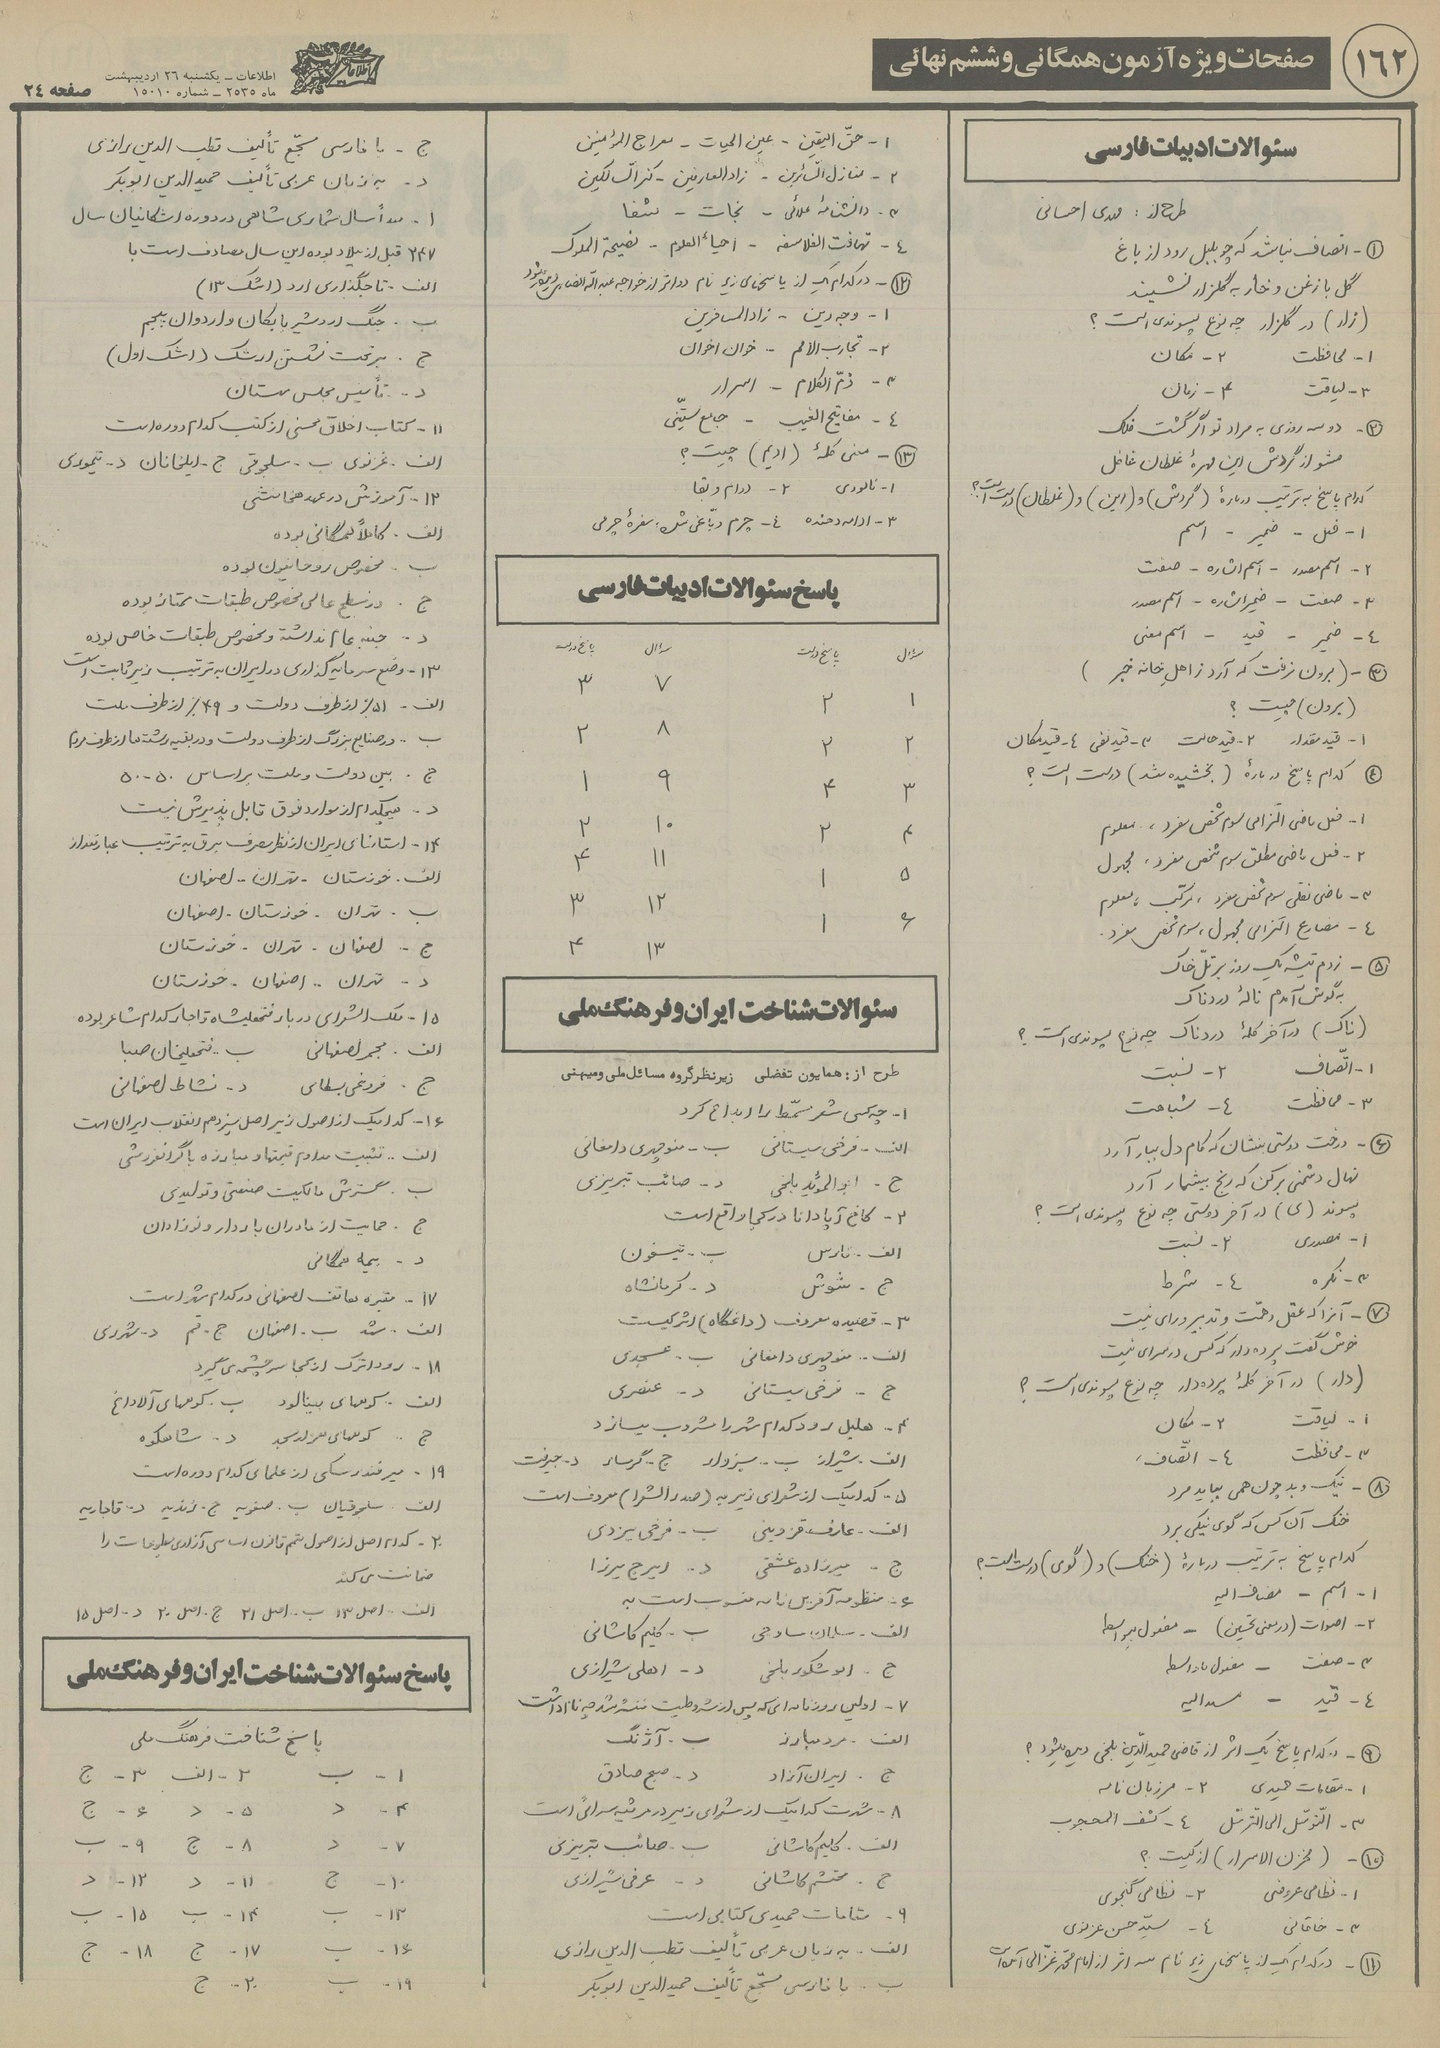 ۱۶۲
صفحات ویژه آزمون همگانی و ششم نهائی
اطلاعات
اطلاعات ـ یکشنبه ۲۶ اردیبهشت
ماه ۲۵۳۵ ـ شماره ۱۵۰۱۰
صفحه ۲۴
سئوالات ادبیات فارسی
طرح از : مهدی احسانی
۱ - انصاف نباشد که چو بلبل رود از باغ
گل با زغن و خار به گلزار نشیند
(زار) در گلزار چه نوع پسوندی است ؟
۱- محافظت ۲- مکان
۳- لیاقت ۴- زمان
۲ - دو سه روزی به مراد تو اگر گشت فلک
مشو از گردش این مهرهٔ غلطان غافل
کدام پاسخ به ترتیب دربارهٔ (گردش) و (این) و (غلطان) درست است؟
۱- فعل - ضمیر - اسم
۲- اسم مصدر - اسم اشاره - صفت
۳- صفت - ضمیر اشاره - اسم مصدر
۴- ضمیر - قید - اسم معنی
۳ - (برون نرفت که آرد ز اهل خانه خبر )
(برون) چیست ؟
۱- قید مقدار ۲- قید حالت ۳- قید نفی ۴- قید مکان
۴ کدام پاسخ دربارهٔ (بخشیده شد) درست است ؟
۱- فعل ماضی التزامی سوم شخص مفرد ، معلوم
۲- فعل ماضی مطلق سوم شخص مفرد ، مجهول
۳- ماضی نقلی سوم شخص مفرد ، مرکب ، معلوم
۴- مضارع التزامی مجهول ، سوم شخص مفرد .
۵ - زدم تیشه یک روز بر تل خاک
به گوش آمدم نالهٔ دردناک
(ناک) در آخر کلمهٔ دردناک چه نوع پسوندی است ؟
۱- اتّصاف ۲- نسبت
۳- محافظت ۴- شباهت
۶ - درخت دوستی بنشان که کام دل ببار آرد
نهال دشمنی برکن که رنج بیشمار آرد
پسوند (ی) در آخر دوستی چه نوع پسوندی است ؟
۱- مصدری ۲- نسبت
۳- نکره ۴- شرط
۷ - آنرا که عقل و همّت و تدبیر و رای نیست
خوش گفت پرده دار که کس در سرای نیست
(دار) در آخر کلمهٔ پرده دار چه نوع پسوندی است ؟
۱- لیاقت ۲- مکان
۳- محافظت ۴- اتّصاف
۸ - نیک و بد چون همی بباید مرد
خنک آن کس که گوی نیکی برد
کدام پاسخ به ترتیب دربارهٔ (خنک) و (گوی) درست است؟
۱- اسم - مضاف الیه
۲- اصوات (در معنی تحسین) - مفعول بیواسطه
۳- صفت - مفعول باواسطه
۴- قید - مسندالیه
۹ - در کدام پاسخ یک اثر از قاضی حمیدالدّین بلخی دیده میشود ؟
۱- مقامات حمیدی ۲- مرزبان نامه
۳- التوسّل الی الترسّل ۴- کشف المحجوب
۱۰ - (مخزن الاسرار) از کیست ؟
۱- نظامی عروضی ۲- نظامی گنجوی
۳- خاقانی ۴- سیّد حسن غزنوی
۱۱ - در کدام یک از پاسخهای زیر نام سه اثر از امام محمّد غزّالی آمده است
۱- حقّ الیقین - عین الحیات - معراج المؤمنین
۲- منازل السّائرین - زادالعارفین - کنزالسّالکین
۳- دانشنامهٔ علائی - نجات - شفا
۴- تهافت الفلاسفه - احیاءالعلوم - نصیحة الملوک
۱۲ - در کدام یک از پاسخهای زیر نام دو اثر از خواجه عبدالله انصاری دیده میشود
۱- وجه دین - زادالمسافرین
۲- تجارب الامم - خوان اخوان
۳- ذمّ الکلام - اسرار
۴- مفاتیح الغیب - جامع ستّینی
۱۳ - معنی کلمهٔ (ادیم) چیست ؟
۱- نابودی ۲- دوام و بقا
۳- ادامه دهنده ۴- چرم دبّاغی شده ، سفرهٔ چرمی
پاسخ سئوالات ادبیات فارسی
سؤال پاسخ درست سؤال پاسخ درست
۱ ۲ ۷ ۳
۲ ۲ ۸ ۲
۳ ۴ ۹ ۱
۴ ۲ ۱۰ ۲
۵ ۱ ۱۱ ۴
۶ ۱ ۱۲ ۳
۱۳ ۴
سئوالات شناخت ایران و فرهنگ ملی
طرح از : همایون تفضلی زیرنظر گروه مسائل ملی و میهنی
۱- چه کسی شعر مسمّط را ابداع کرد
الف - فرخی سیستانی ب - منوچهری دامغانی
ج - ابوالموید بلخی د - صائب تبریزی
۲- کاخ آپادانا در کجا واقع است
الف - فارس ب - تیسفون
ج - شوش د - کرمانشاه
۳- قصیده معروف (داغگاه) اثر کیست
الف - منوچهری دامغانی ب - عسجدی
ج - فرخی سیستانی د - عنصری
۴- هلیل رود کدام شهر را مشروب میسازد
الف - شیراز ب - سبزوار ج - گرمسار د - جیرفت
۵- کدامیک از شعرای زیر به (صدرالشعرا) معروف است
الف - عارف قزوینی ب - فرخی یزدی
ج - میرزاده عشقی د - ایرج میرزا
۶- منظومه آفرین نامه منسوب است به
الف - سلمان ساوجی ب - کلیم کاشانی
ج - ابوشکور بلخی د - اهلی شیرازی
۷- اولین روزنامه ای که پس از مشروطیت منتشر شد چه نام داشت
الف - مرد مبارز ب - آژنگ
ج - ایران آزاد د - صبح صادق
۸- شهرت کدامیک از شعرای زیر در مرثیه سرائی است
الف - کلیم کاشانی ب - صائب تبریزی
ج - محتشم کاشانی د - عرفی شیرازی
۹- مقامات حمیدی کتابی است
الف - به زبان عربی تألیف قطب الدین رازی
ب - با فارسی مسجّع تألیف حمیدالدین ابوبکر
ج - با فارسی مسجّع تألیف قطب الدین رازی
د - به زبان عربی تألیف حمیدالدین ابوبکر
۱۰- مبدأ سال شماری شاهی در دوره اشکانیان سال
۲۴۷ قبل از میلاد بوده این سال مصادف است با
الف - تاجگذاری ارد (اشک ۱۳)
ب - جنگ اردشیر بابکان و اردوان پنجم
ج - بر تخت نشستن ارشک (اشک اول)
د - تأسیس مجلس مهستان
۱۱- کتاب اخلاق محسنی از کتب کدام دوره است
الف - غزنوی ب - سلجوقی ج - ایلخانان د - تیموری
۱۲- آموزش در عهد هخامنشی
الف - کاملاً همگانی بوده
ب - مخصوص روحانیون بوده
ج - در سطح عالی مخصوص طبقات ممتاز بوده
د - جنبه عام نداشته و مخصوص طبقات خاص بوده
۱۳- وضع سرمایه گذاری در ایران به ترتیب زیر ثابت است
الف - ۵۱٪ از طرف دولت و ۴۹٪ از طرف ملت
ب - در صنایع بزرگ از طرف دولت و در بقیه رشته ها از طرف مردم
ج - بین دولت و ملت براساس ۵۰-۵۰
د - هیچکدام از موارد فوق قابل پذیرش نیست
۱۴- استانهای ایران از نظر مصرف برق به ترتیب عبارتند از
الف - خوزستان - تهران - اصفهان
ب - تهران - خوزستان - اصفهان
ج - اصفهان - تهران - خوزستان
د - تهران - اصفهان - خوزستان
۱۵- ملک الشعرای دربار فتحعلیشاه قاجار کدام شاعر بوده
الف - مجمر اصفهانی ب - فتحعلیخان صبا
ج - فروغی بسطامی د - نشاط اصفهانی
۱۶- کدامیک از اصول زیر اصل سیزدهم انقلاب ایران است
الف - تثبیت مداوم قیمتها و مبارزه با گرانفروشی
ب - گسترش مالکیت صنعتی و تولیدی
ج - حمایت از مادران باردار و نوزادان
د - بیمه همگانی
۱۷- مقبره هاتف اصفهانی در کدام شهر است
الف - مشهد ب - اصفهان ج - قم د - شهرری
۱۸- رود اترک از کجا سرچشمه می گیرد
الف - کوههای بینالود ب - کوههای آلاداغ
ج - کوههای هزار مسجد د - شاهکوه
۱۹- میرفندرسکی از علمای کدام دوره است
الف - سلجوقیان ب - صفویه ج - زندیه د - قاجاریه
۲۰- کدام اصل از اصول متمم قانون اساسی آزادی مطبوعات را
ضمانت می کند
الف - اصل ۱۳ ب - اصل ۲۱ ج - اصل ۲۰ د - اصل ۱۵
پاسخ سئوالات شناخت ایران و فرهنگ ملی
پاسخ شناخت فرهنگ ملی
۱- ب ۲- الف ۳- ج
۴- د ۵- د ۶- ج
۷- د ۸- ج ۹- ب
۱۰- ج ۱۱- د ۱۲- د
۱۳- ب ۱۴- ب ۱۵- ب
۱۶- ب ۱۷- ج ۱۸- ج
۱۹- ب ۲۰- ج